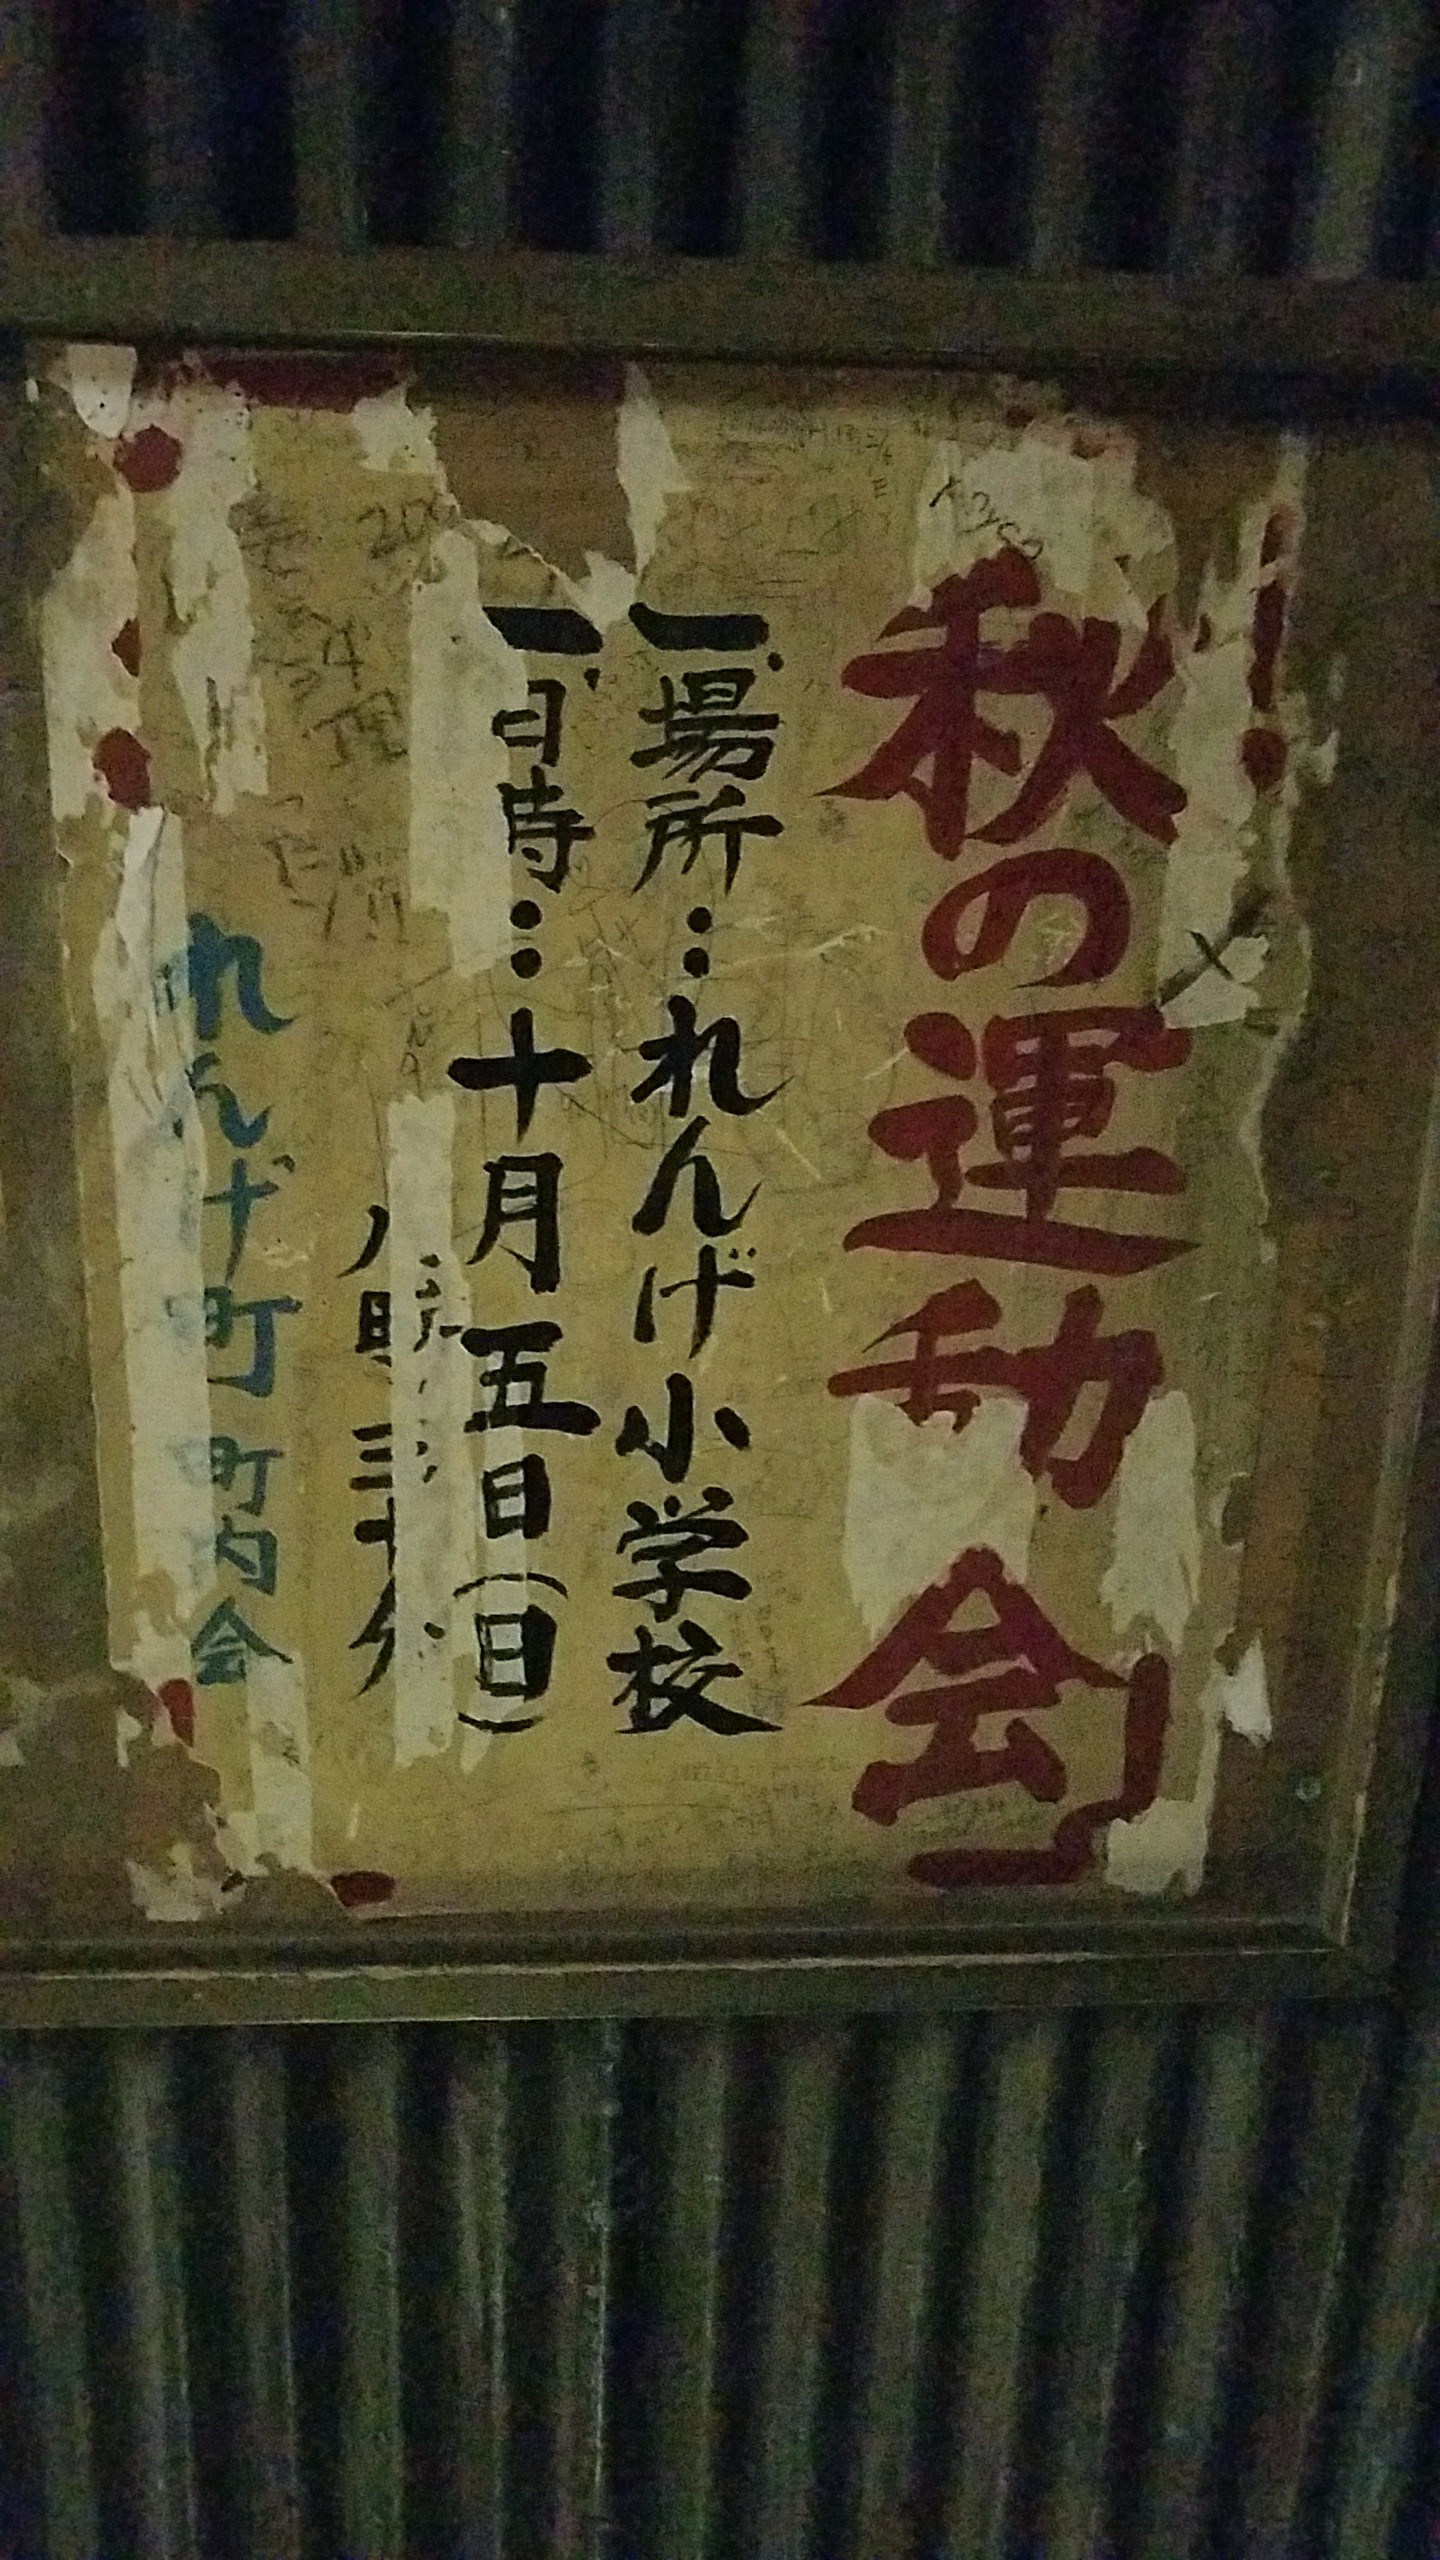 秋の運動会
一、場所…れんげ小学校
一、日時…十月五日(日)
八時三十分
れんげ町町内会